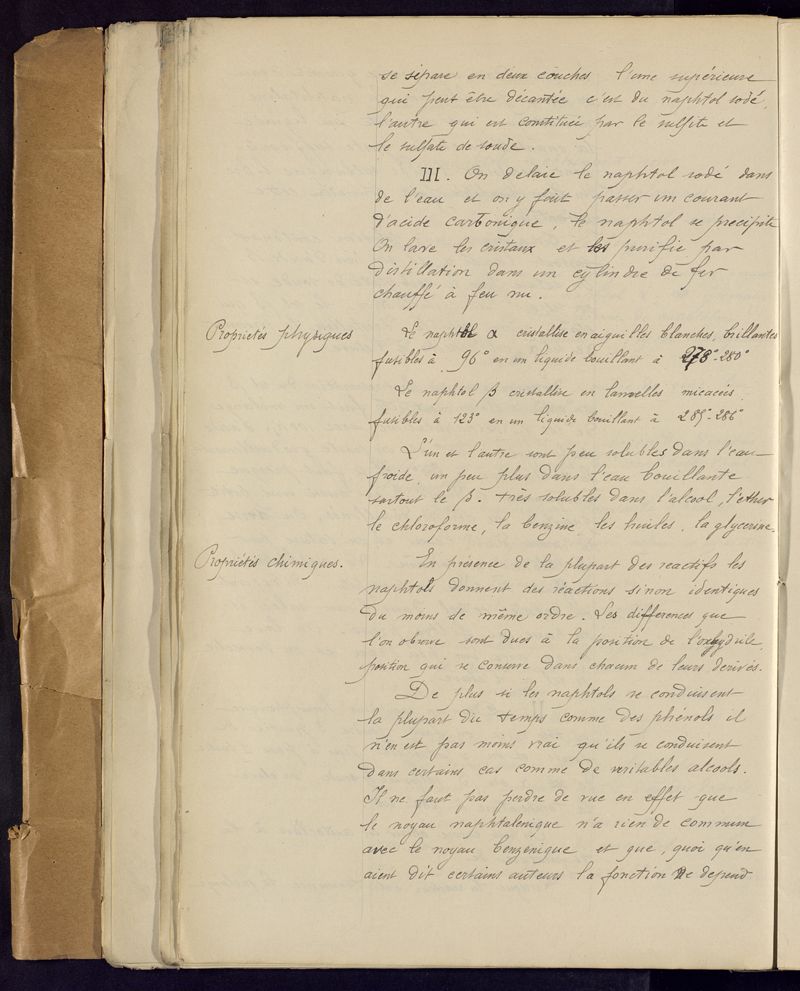 se sépare en deux couches l'une supérieure
qui peut être décantée c'est du naphtol sodé,
l'autre qui est constituée par le sulfite et
le sulfate de soude.
III. On delaie le naphtol sodé dans
de l'eau et on y fait passer un courant
d'acide carbonique, le naphtol se precipite
On lave les cristaux et les purifie par
distillation dans un cylindre de fer
chauffé à feu nu.
Proprietés physiques
Le naphtol α cristallise en aiguilles blanches, brillantes
fusibles à 96° en un liquide bouillant à 278°-280°
Le naphtol β cristallise en lamelles micacées
fusibles à 123° en un liquide bouillant à 285°-286°
L'un et l'autre sont peu solubles dans l'eau
froide, un peu plus dans l'eau bouillante
surtout le β. très solubles dans l'alcool, l'ether
le chloroforme, la benzine les huiles, la glycerine.
Propriétés chimiques.
En présence de la plupart des reactifs les
naphtols donnent des réactions sinon identiques
du moins de même ordre. Les differences que
l'on observe sont dues à la position de l'oxhydrile,
position qui se conserve dans chacun de leurs derivés.
De plus si les naphtols se conduisent
la plupart du temps comme des phénols il
n'en est pas moins vrai qu'ils se conduisent
dans certains cas comme de veritables alcools.
Il ne faut pas perdre de vue en effet que
le noyau naphtalenique n'a rien de commun
avec le noyau benzenique et que, quoi qu'en
aient dit certains auteurs la fonction ne depend